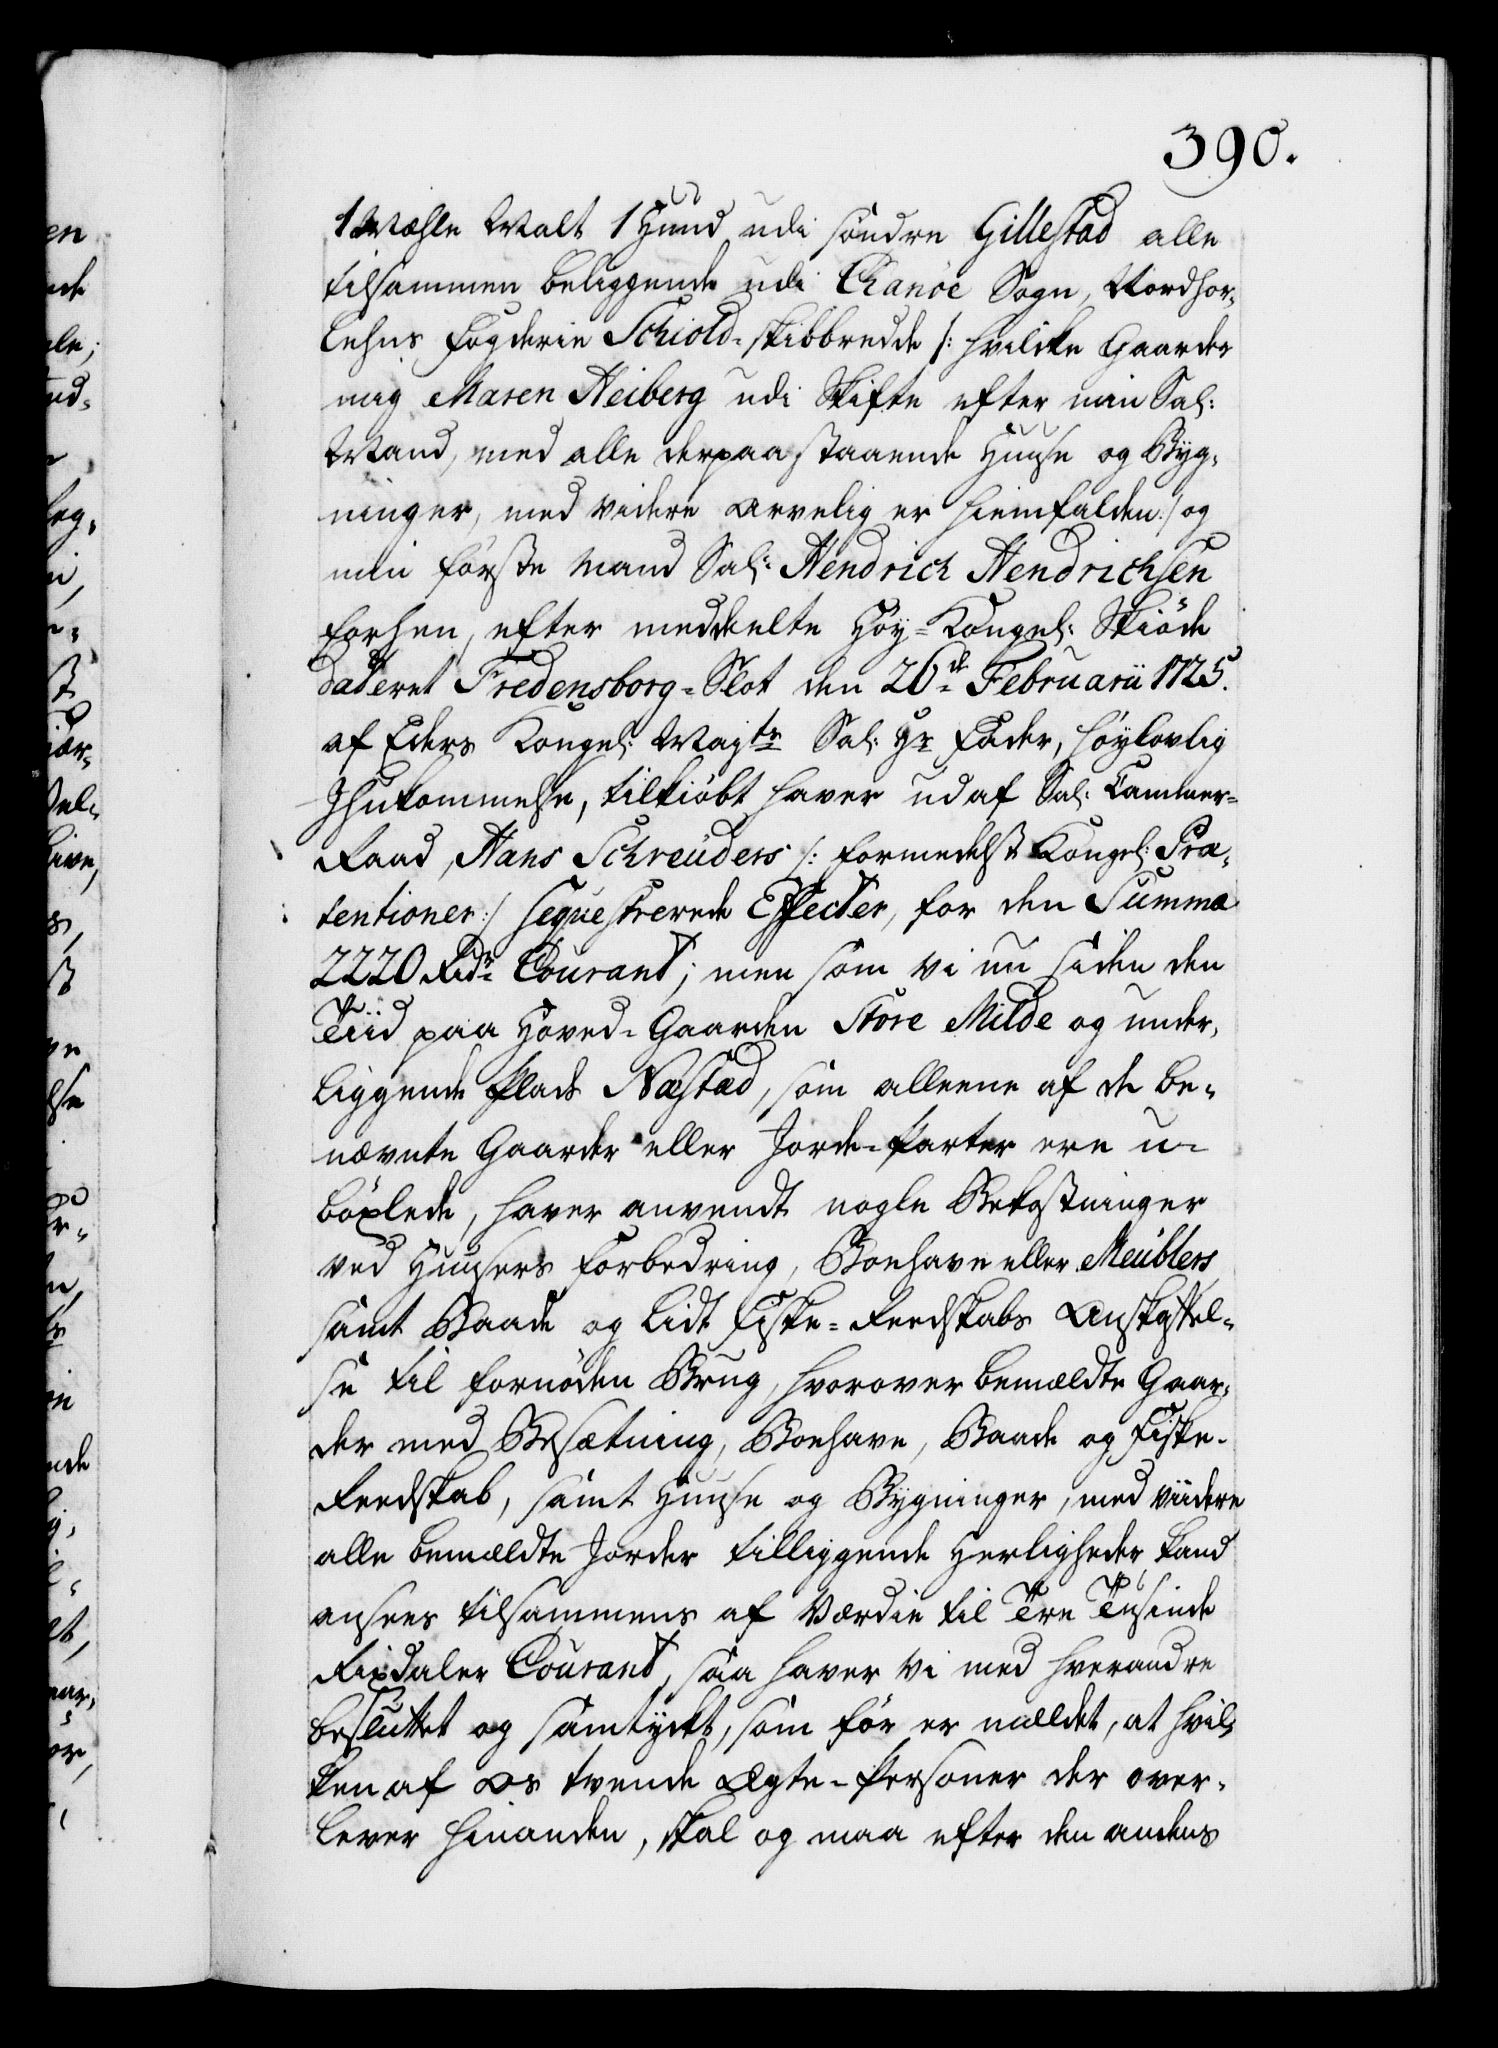 390.
1 Mæhle Malt 1 Hund udi søndre Gillestad alle
tilsammen beliggende udi Fanöe Sogn, Nordhor-
lehns Fogderie Schiold-skibbredde /: hvilcke Gaarder
mig Maren Heiberg udi Skifte efter min Sal:
Mand, med alle derpaa staaende Huuse og Byg-
ninger, med videre arvelig er hiemfalden :/ og
min første Mand Sal: Hendrich Hendrichsen
forhen, efter meddeelte Høy-Kongel: Skiøde
dateret Fredensborg-Slot den 26de Februarii 1725.
af Eders Kongel: Mayts Sal: Hr Fader, høylovlig
Ihukommelse, tilkiöbt haver ud af Sal: Cammer-
Raad, Hans Schreüders /: formedelst Kongel: Præ-
tentioner :/ seqvestrerede Effecter, for den Summa
2220 Rdr Courant; men som vi nu siden den
Tiid paa Hoved-Gaarden Store Milde og under-
liggende Plads Næstad, som alleene af de be-
nævnte Gaarder eller Jorde-Parter ere u-
böxlede, haver anvendt nogle Bekostninger
ved Huusers Forbedring, Boehave eller Meublers
samt Baade og lidt Fiske-Reedskabs Anskaffel-
se til fornøden Brug, hvorover bemældte Gaar-
der med Besætning, Boehave, Baade og Fiske-
Reedskab, samt Huuse og Bygninger, med viidere
alle bemældte Jorder tilliggende Herligheder, kand
ansees tilsammens af Værdie til Tre Tusinde
Rixdaler Courant, saa haver vi med hverandre
besluttet og samtyckt, som för er mældet, at hvil-
ken af os tvende Ægte-Personer der over-
lever hinanden, skal og maa efter den andens